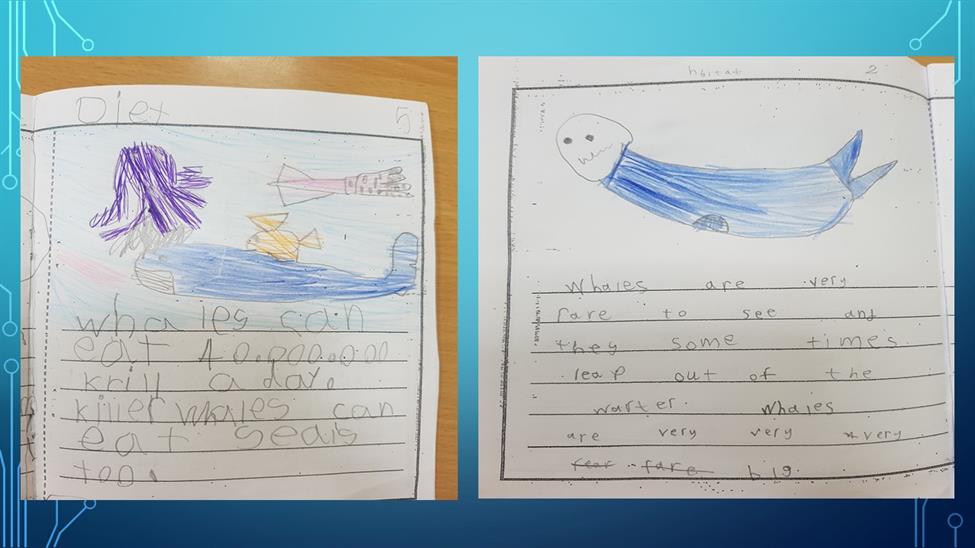 Diet
5
whales can
eat 40.000.00.00
krill a day.
killer whales can
eat seals
too.
hbitat
2
Whales are very
rare to see and
they some times
leap out of the
warter. Whales
are very very very
rear rare big.